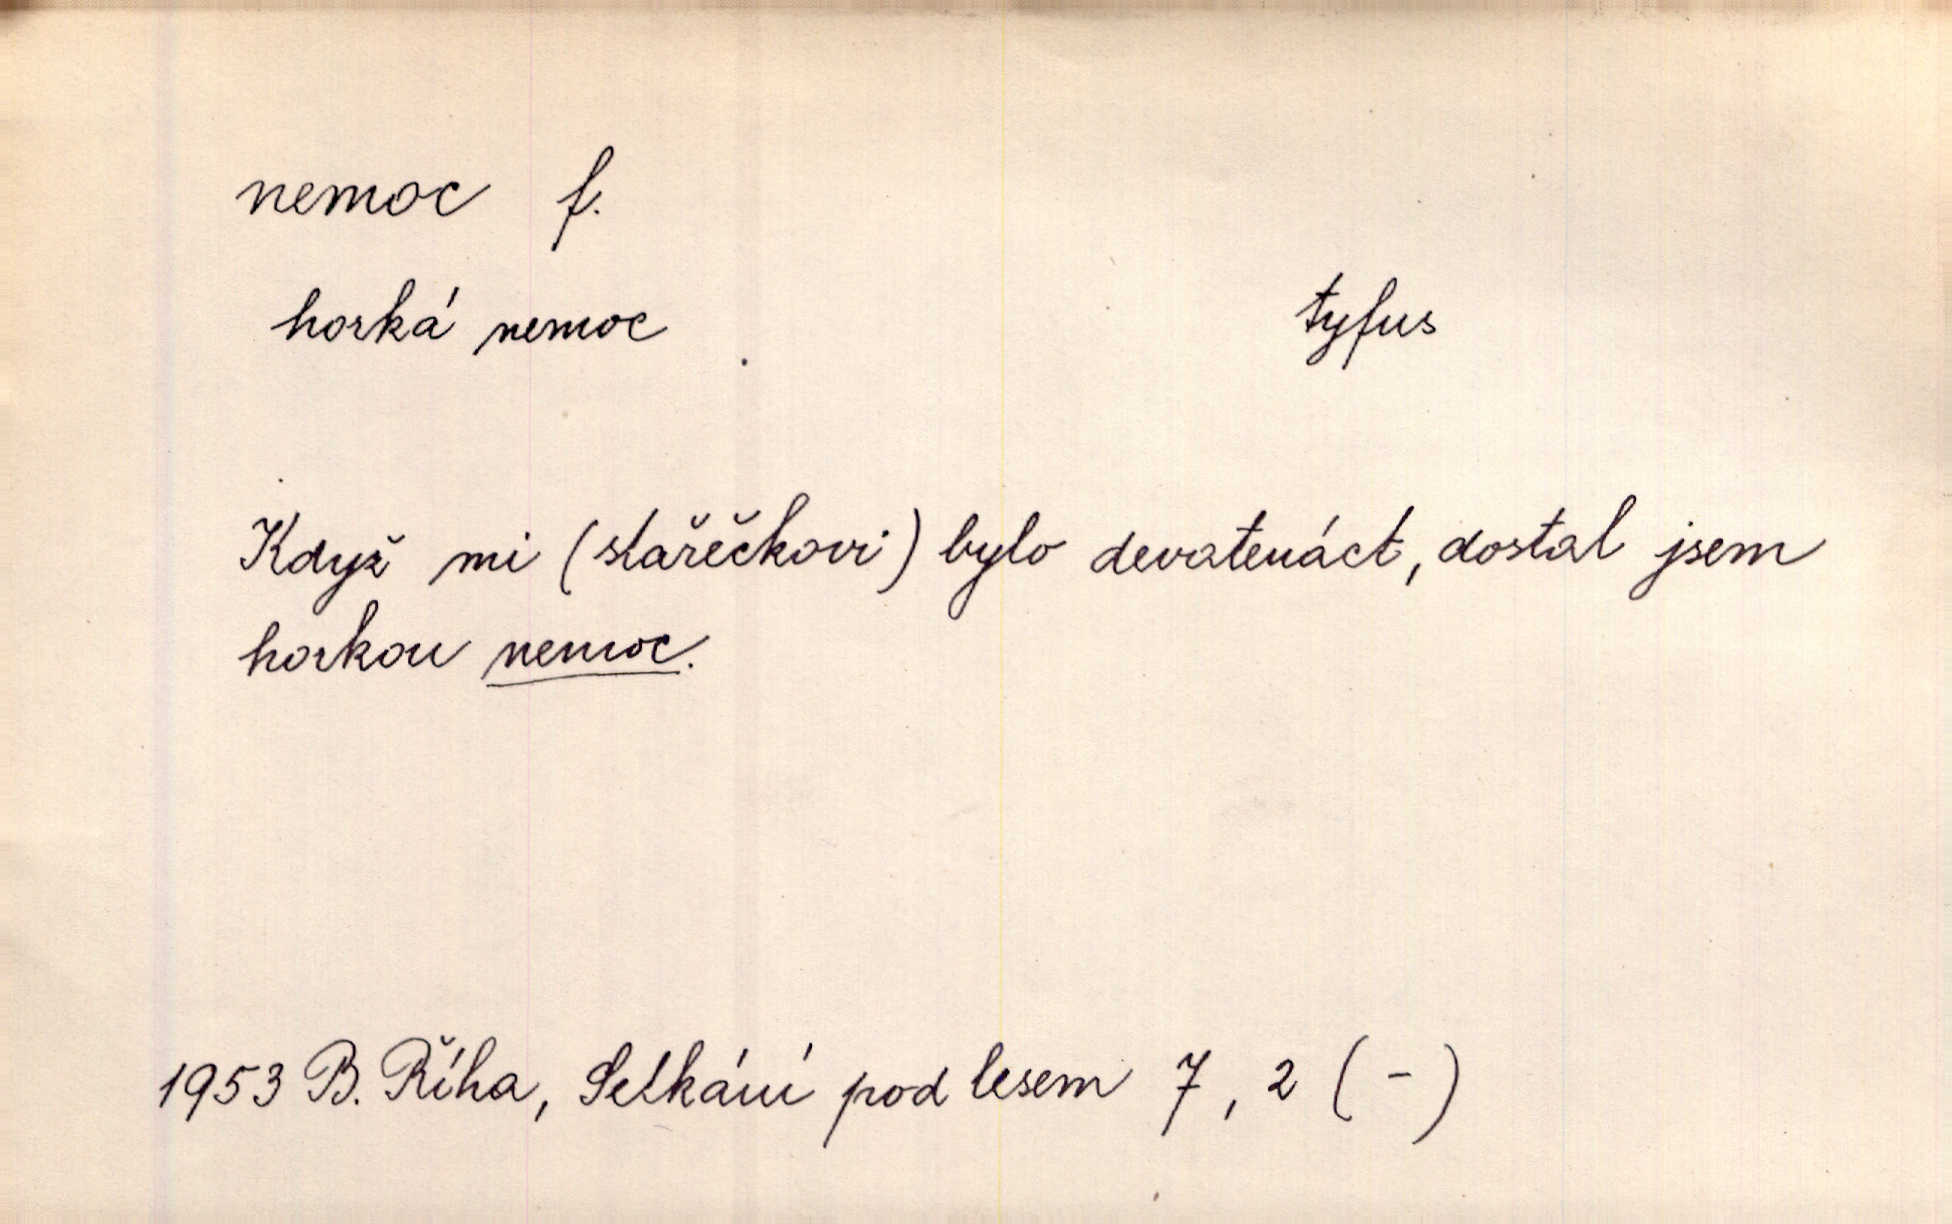 nemoc f.
horká nemoc tyfus
Když mi (stařečkovi) bylo devatenáct, dostal jsem
horkou nemoc.
1953 B. Říha, Setkání pod lesem 7, 2 (-)